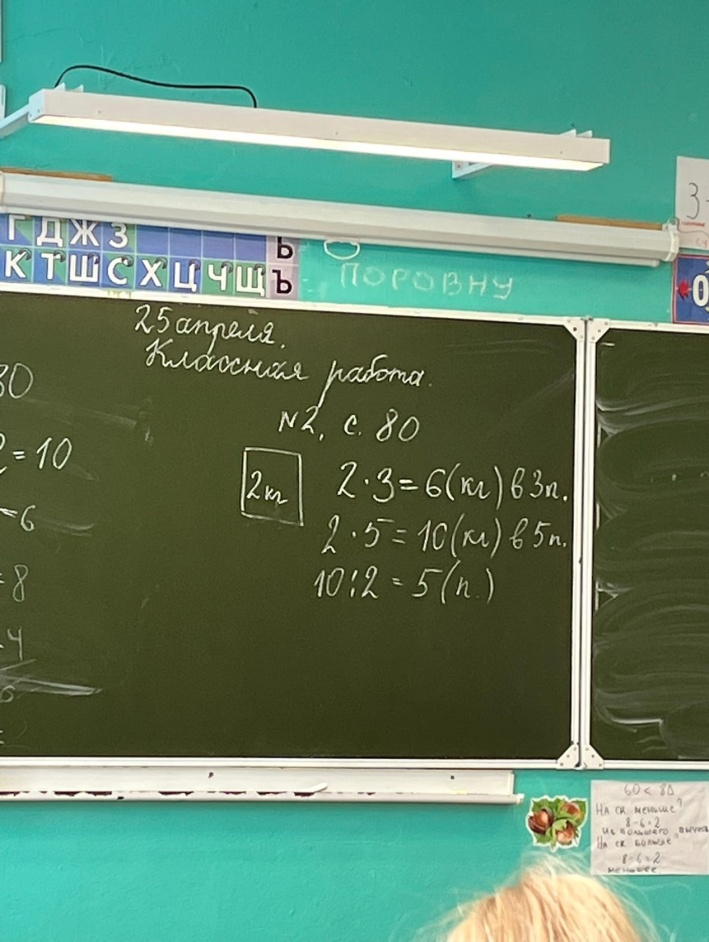 Г Д Ж З Ь
К Т Ш С Х Ц Ч Щ Ъ
ПОРОВНУ
3
25 апреля.
Классная работа.
N2, с. 80
2кг
2·3=6(кг) в 3п.
2·5=10(кг) в 5п.
10:2=5(п.)
30
2=10
=6
=8
4
60 < 80
На ск меньше?
8-6=2
Из большего
На ск больше
8-6=2
меньшее